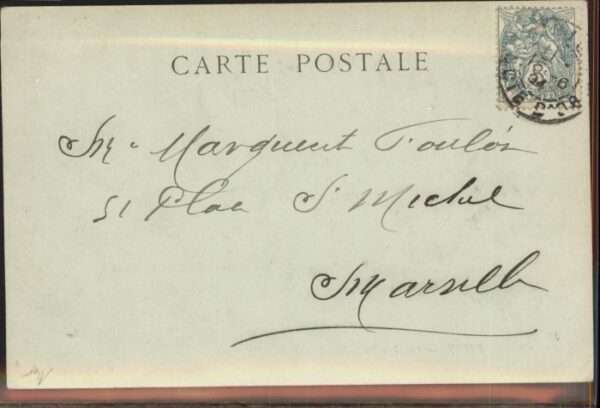 CARTE POSTALE
Mr Marguent Toulon
51 Place St Michel
Marseille